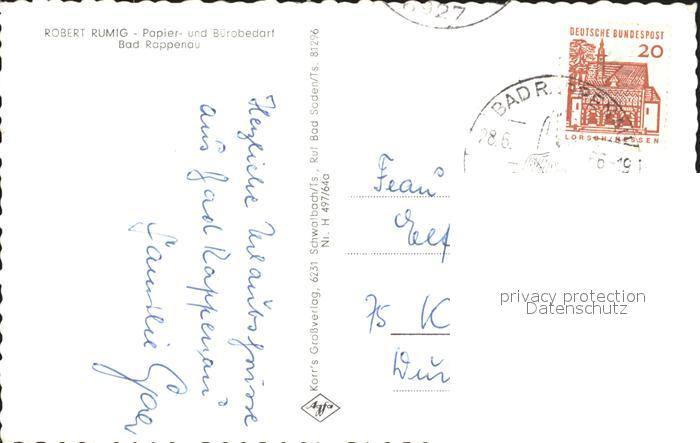 6927
ROBERT RUMIG - Papier- und Bürobedarf
Bad Rappenau
DEUTSCHE BUNDESPOST
20
LORSCH/HESSEN
BAD RAPPENAU
28.6. 66-19
Herzliche Urlaubsgrüsse
aus Bad Rappenau
Familie
Korr's Großverlag, 6231 Schwalbach/Ts., Ruf Bad Soden/Ts. 81296
Nr. H 497/64a
Agfa
Frau
Elf
75 K
privacy protection
Datenschutz